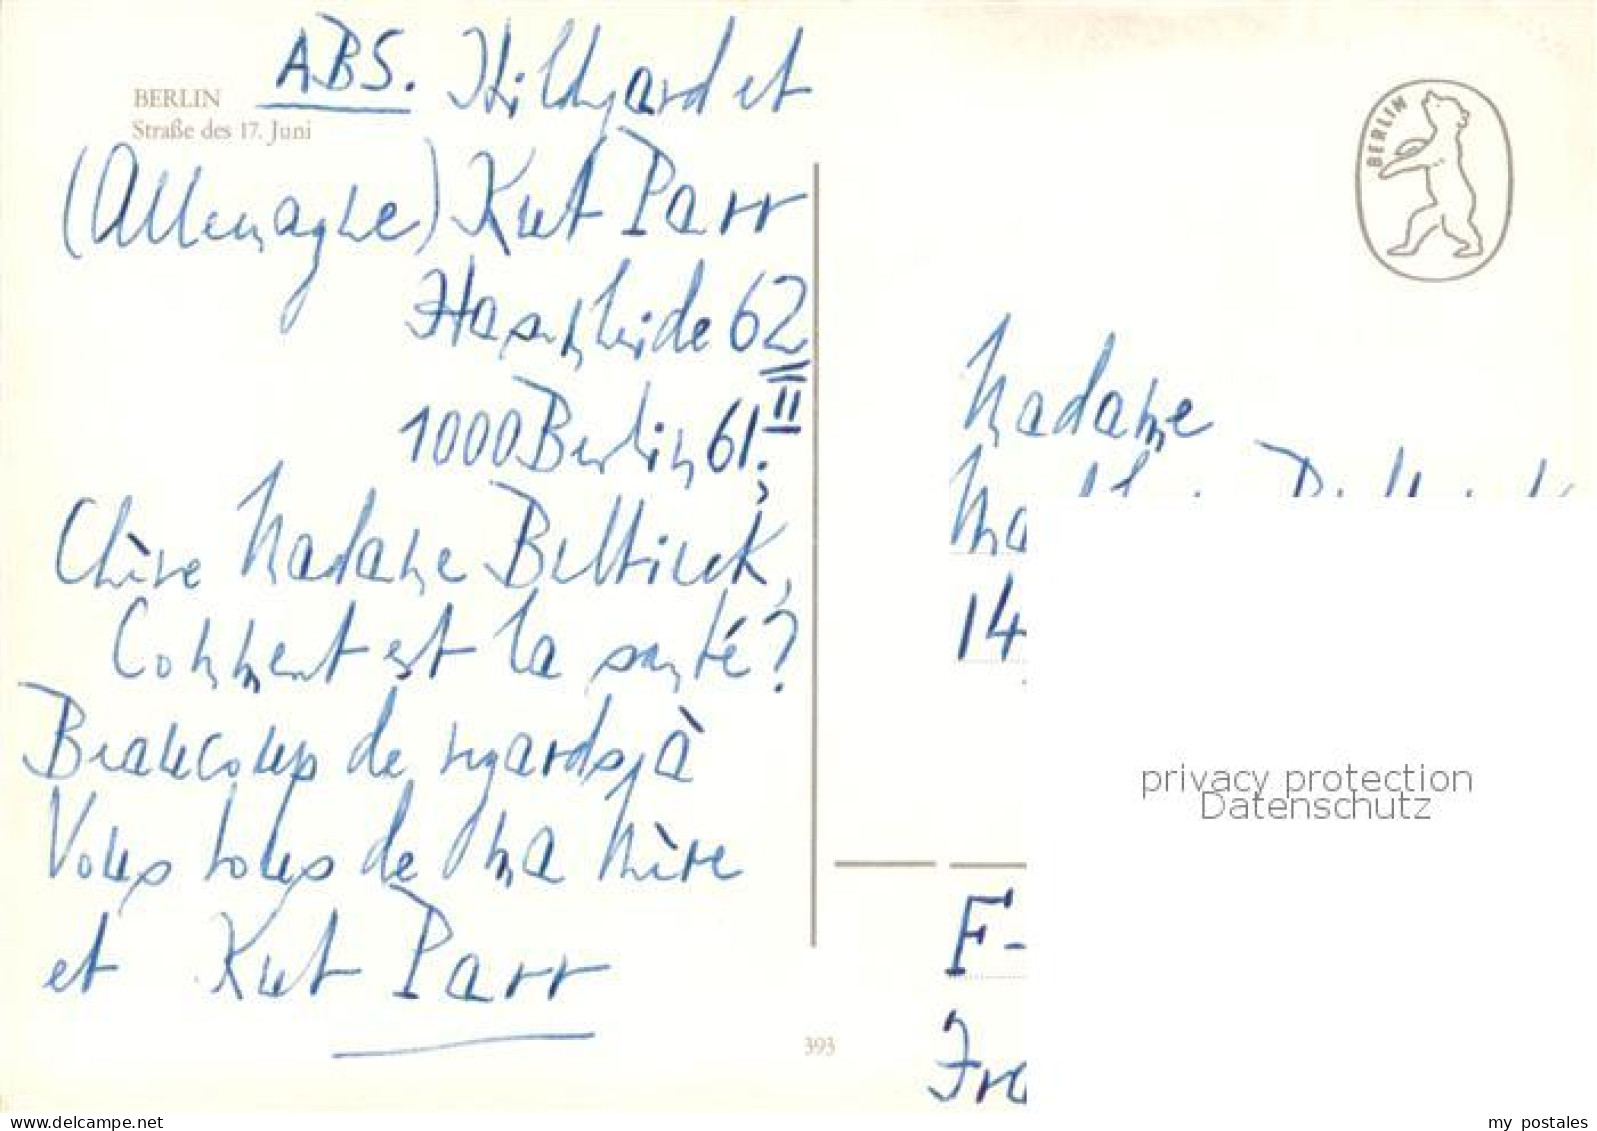 BERLIN
Straße des 17. Juni
ABS. Hildgard et
(Allemagne) Kut Parr
Hasenheide 62
1000 Berlin 61. II
Chère Madame Beltirek,
Comment est la santé?
Beaucoup de regards, à
Vous tous de Ma Mère
et Kut Parr
393
BERLIN
Madame
Ma
14
F-
Fra
privacy protection
Datenschutz
www.delcampe.net
my_postales